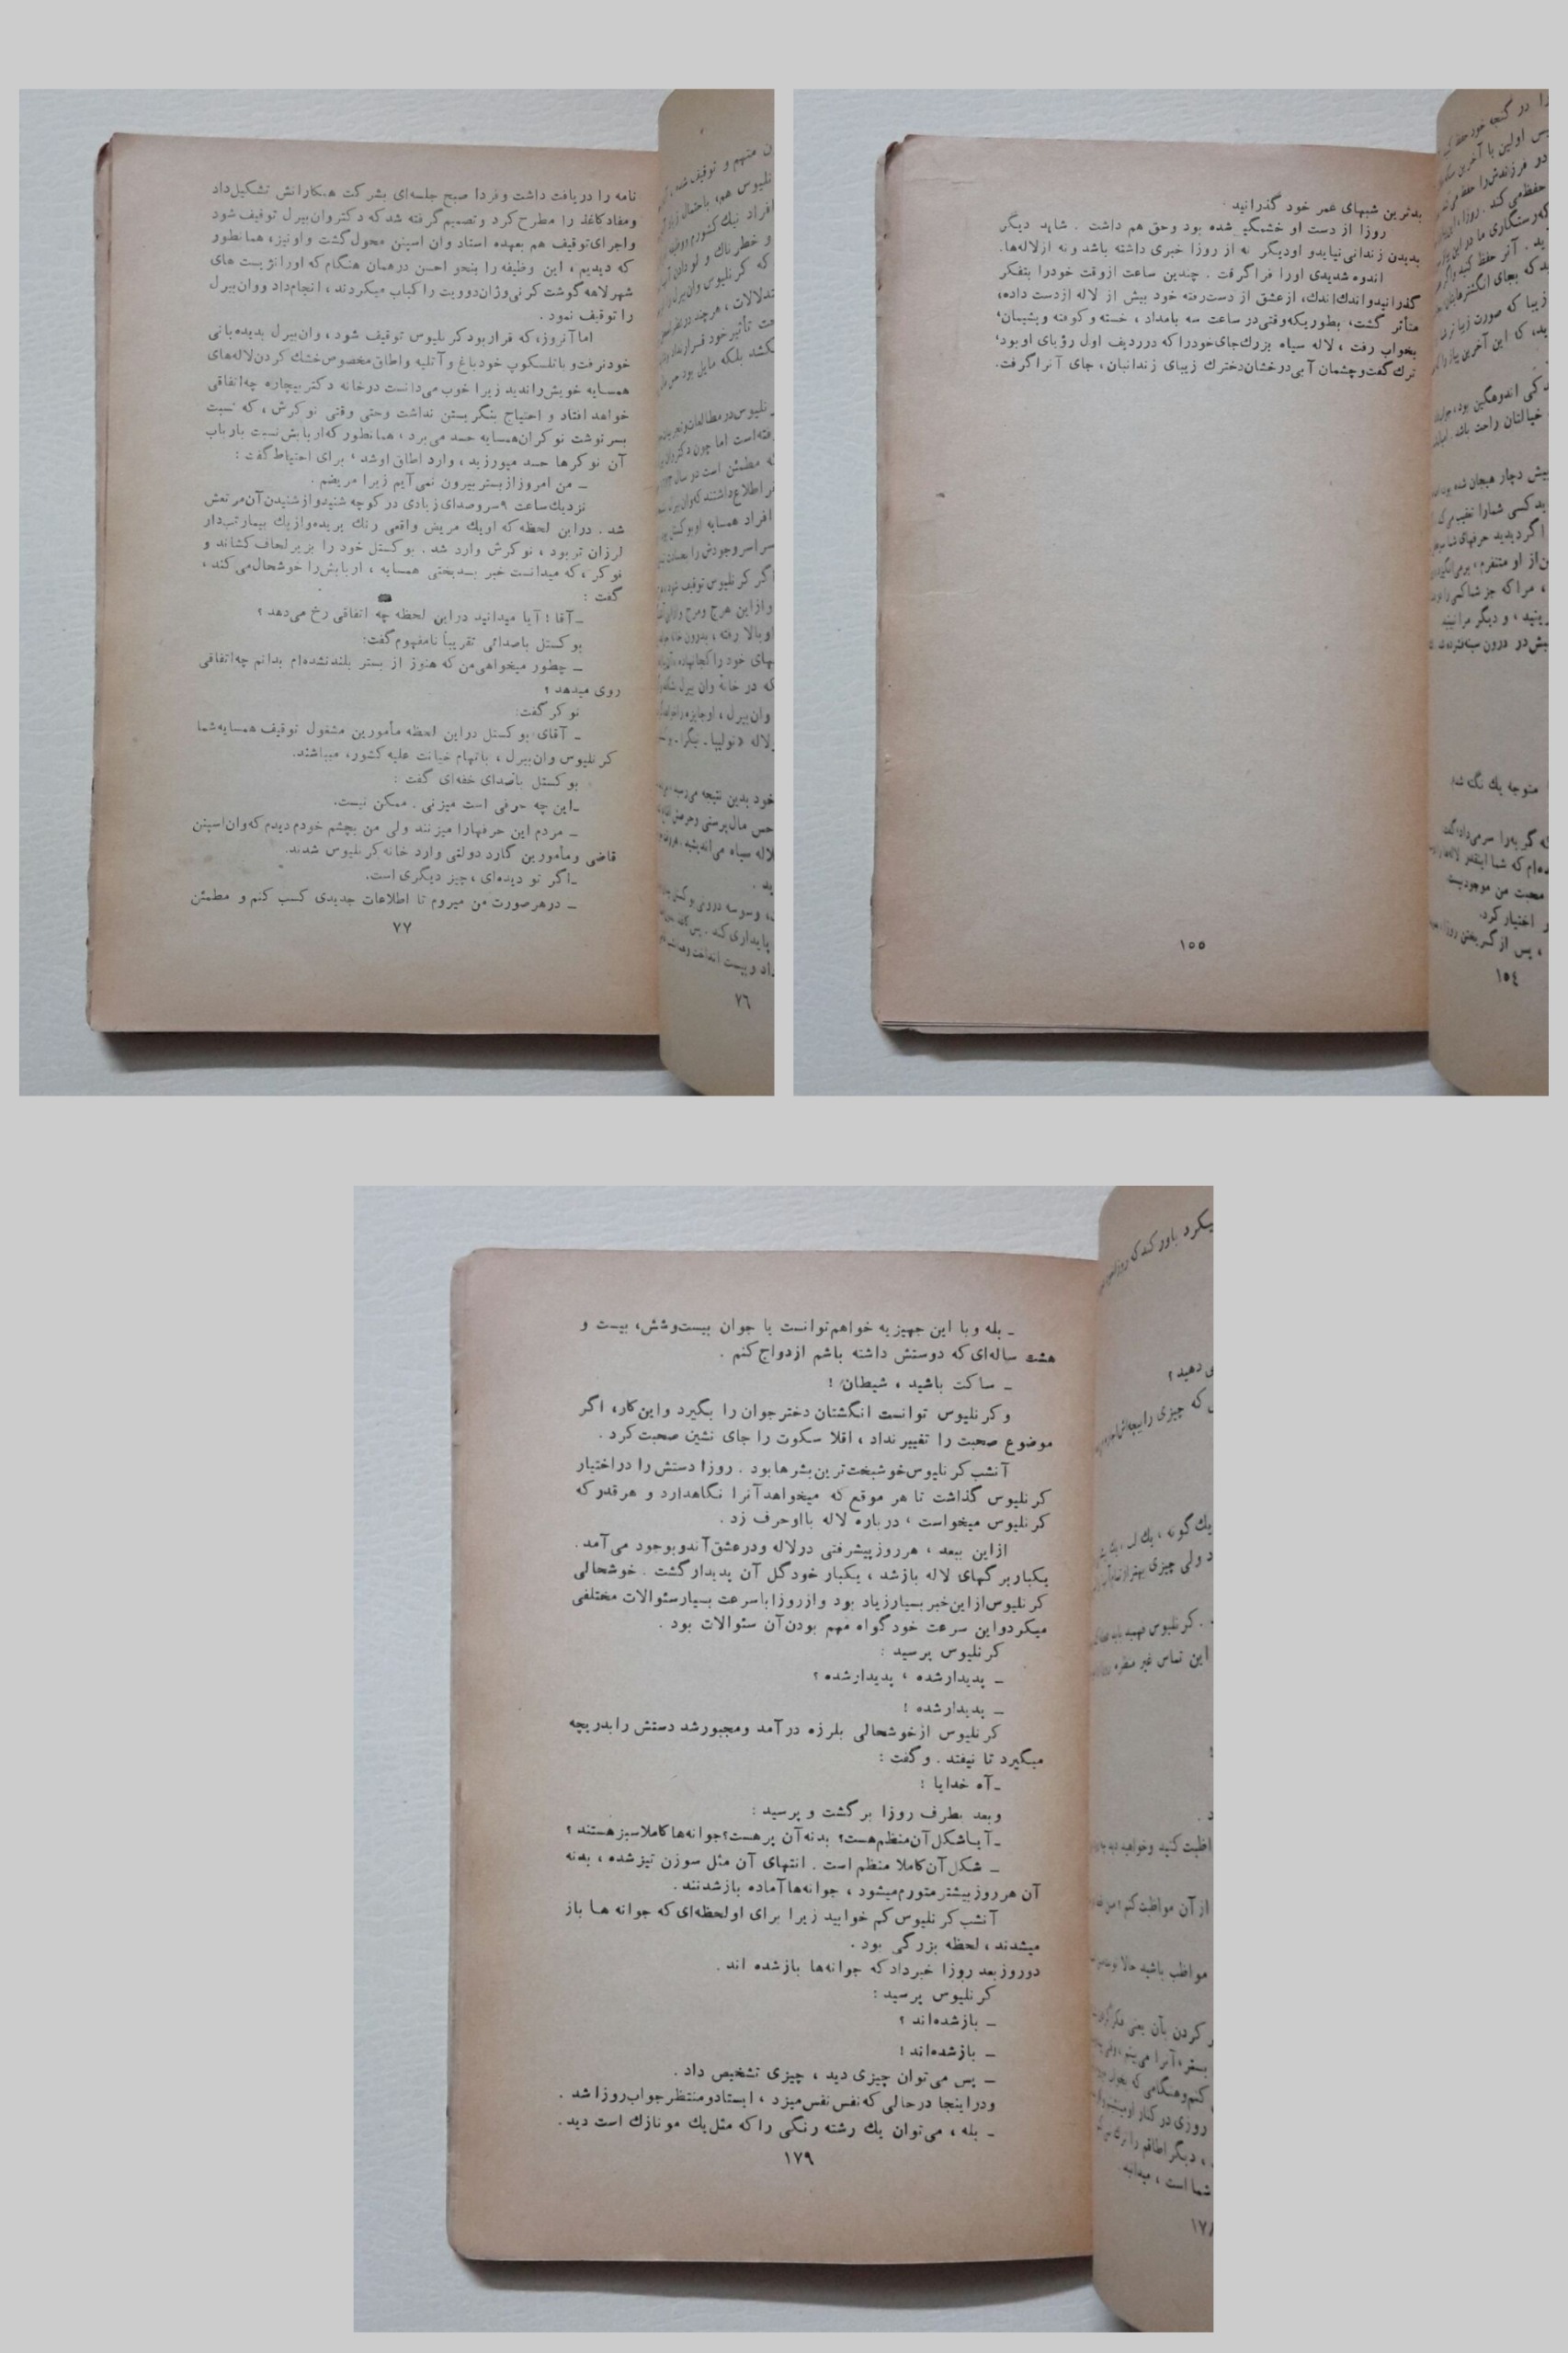 نامه را دریافت داشت وفردا صبح جلسه‌ای بشرکت همکارانش تشکیل‌داد
ومفادکاغذ را مطرح‌کرد وتصمیم‌گرفته شدکه دکتروان‌بیرل توقیف شود
واجرای‌توقیف هم بعهده استاد وان اسپنن محول‌گشت واونیز، همانطور
که دیدیم، این وظیفه را بنحو احسن درهمان هنگام‌که اورانژیست های
شهرلاهه‌گوشت کرنی‌وژان‌دوویت راکباب میکردند، انجام‌داد ووان‌بیرل
را توقیف نمود.
اماآنروز،که قراربودکرنلیوس توقیف شود، وان‌بیرل بدیده‌بانی
خودنرفت‌وباتلسکوپ خودباغ وآتلیه واطاق‌مخصوص‌خشك‌کردن‌لاله‌های
همسایه خویش‌راندید زیرا خوب می‌دانست درخانه دکتربیچاره چه‌اتفاقی
خواهد افتاد و احتیاج بنگریستن نداشت وحتی وقتی نوکرش، که نسبت
بسرنوشت نوکران‌همسایه حسد می‌برد، همانطورکه‌اربابش‌نسبت بارباب
آن نوکرها حسد میورزید، وارد اطاق اوشد، برای احتیاط‌گفت:
ـ من امروزازبستربیرون نمی‌آیم زیرا مریضم.
نزدیك‌ساعت ۹سروصدای‌زیادی درکوچه شنیدوازشنیدن‌آن‌مرتعش
شد. دراین لحظه‌که اویك مریض واقعی رنك پریده‌وازیك بیمارتب‌دار
لرزان تربود، نوکرش وارد شد. بوکستل خود را بزیرلحاف‌کشاند و
نوکر،که میدانست خبر بدبختی همسایه، اربابش‌را خوشحال‌می‌کند،
گفت:
ـآقا! آیا میدانید دراین لحظه چه اتفاقی رخ می‌دهد؟
بوکستل باصدائی تقریباً نامفهوم‌گفت:
ـ چطور میخواهی‌من‌که هنوز از بستر بلندنشده‌ام بدانم چه‌اتفاقی
روی میدهد؟
نوکرگفت:
ـ آقای بوکستل دراین لحظه مأمورین مشغول توقیف همسایه‌شما
کرنلیوس وان‌بیرل، باتهام خیانت علیه کشور، میباشند.
بوکستل باصدای خفه‌ای گفت:
ـاین چه حرفی است میزنی. ممکن نیست.
ـ مردم این حرفهارا میزنند ولی من بچشم خودم‌دیدم‌که‌وان‌اسپنن
قاضی ومأمورین گارد دولتی وارد خانه‌کرنلیوس شدند.
ـاگر تو دیده‌ای، چیز دیگری است.
ـ درهرصورت من میروم تا اطلاعات جدیدی کسب کنم و مطمئن
۷۷
۷٦
بدترین شبهای عمر خود گذرانید.
روزا از دست او خشمگین شده بود وحق هم داشت. شاید دیگر
بدیدن زندانی‌نیایدو اودیگر نه از روزا خبری داشته باشد ونه ازلاله‌ها.
اندوه شدیدی اورا فراگرفت. چندین ساعت ازوقت خودرا بتفکر
گذرانیدواندك‌اندك، ازعشق از دست‌رفته خود بیش از لاله ازدست داده،
متأثر گشت، بطوریکه‌وقتی‌در ساعت سه بامداد، خسته وکوفته وپشیمان،
بخواب رفت، لاله سیاه بزرك‌جای‌خودراکه درردیف اول رؤیای اوبود،
ترك‌گفت‌وچشمان آبی‌درخشان‌دخترك زیبای زندانبان، جای آنراگرفت.
۱٥٥
متوجه یك نکته شد
محبت من موجودیست
اختیارکرد.
۱٥٤
ـ بله وبا این جهیزیه خواهم‌توانست با جوان بیست‌وشش، بیست و
هشت ساله‌ای‌که دوستش داشته باشم ازدواج‌کنم.
ـ ساکت باشید، شیطان!
وکرنلیوس توانست انگشتان دخترجوان را بگیرد واین‌کار، اگر
موضوع صحبت را تغییرنداد، اقلا سکوت را جای نشین صحبت‌کرد.
آنشب‌کرنلیوس‌خوشبخت‌ترین‌بشرهابود. روزا دستش را دراختیار
کرنلیوس گذاشت تا هر موقع‌که میخواهدآنرا نگاهدارد و هرقدرکه
کرنلیوس میخواست، درباره لاله بااوحرف زد.
ازاین ببعد، هرروزپیشرفتی درلاله ودرعشق‌آندوبوجود می‌آمد.
یکباربرگهای لاله بازشد، یکبار خودگل آن پدیدارگشت. خوشحالی
کرنلیوس‌ازاین‌خبربسیارزیاد بود وازروزاباسرعت بسیارسئوالات مختلفی
میکردواین سرعت خودگواه مهم بودن‌آن سئوالات بود.
کرنلیوس پرسید:
ـ پدیدارشده، پدیدارشده؟
ـ پدیدارشده!
کرنلیوس ازخوشحالی بلرزه درآمد ومجبورشد دستش رابدریچه
میگیرد تا نیفتد. وگفت:
ـآه خدایا!
وبعد بطرف روزا برگشت و پرسید:
ـآیاشکل‌آن‌منظم‌هست؟ بدنه‌آن پرهست؟جوانه‌هاکاملاسبزهستند؟
ـ شکل‌آن‌کاملا منظم است. انتهای آن مثل سوزن تیزشده، بدنه
آن هرروزبیشترمتورم‌میشود، جوانه‌هاآماده بازشدنند.
آنشب‌کرنلیوس‌کم خوابید زیرا برای اولحظه‌ای‌که جوانه هـا باز
میشدند، لحظه بزرگی بود.
دوروزبعد روزا خبردادکه جوانه‌ها بازشده اند.
کرنلیوس پرسید:
ـ بازشده‌اند؟
ـ بازشده‌اند!
ـ پس می‌توان چیزی دید، چیزی تشخیص داد.
ودراینجا درحالی‌که‌نفس‌نفس‌میزد، ایستادومنتظرجواب‌روزاشد.
ـ بله، می‌توان یك رشته رنگی راکه مثل‌یك مونازك است دید.
۱۷۹